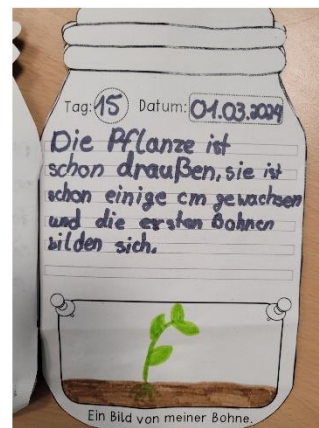 Tag: 15 Datum: 01.03.2024
Die Pflanze ist
schon draußen, sie ist
schon einige cm gewachsen
und die ersten Bohnen
bilden sich.
Ein Bild von meiner Bohne.